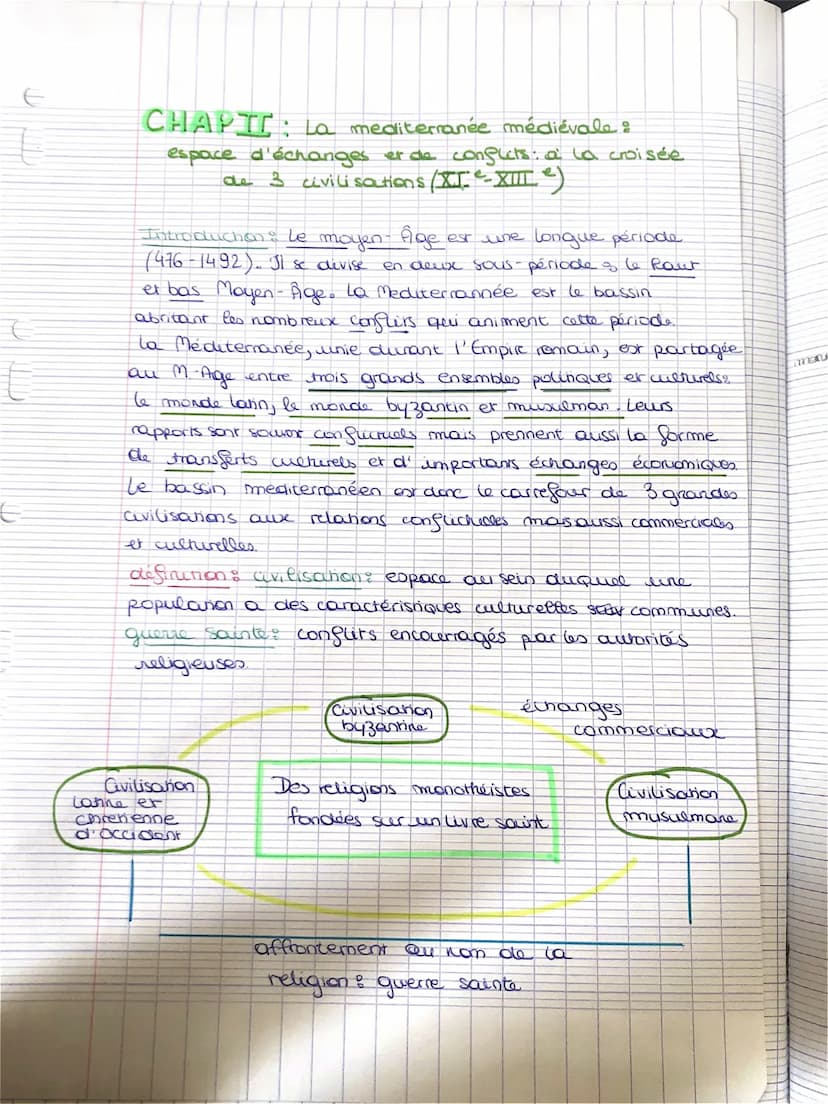 CHAP II : La mediterranée médiévale :
espace d'échanges et de conflits : à la croisée
de 3 civilisations (XI e - XIII e)
Introduction : Le moyen-Âge est une longue période
(476-1492). Il se divise en deux sous-période : le haut
et bas Moyen-Âge. La Mediterrannée est le bassin
abritant les nombreux conflits qui animent cette période.
La Méditerranée, unie durant l'Empire romain, est partagée
au M-Age entre trois grands ensembles politiques et culturels :
le monde latin, le monde byzantin et musulman. Leurs
rapports sont souvent conflictuels mais prennent aussi la forme
de transferts culturels et d'importants échanges économiques.
Le bassin mediterranéen est donc le carrefour de 3 grandes
civilisations aux relations conflictuelles mais aussi commerciales
et culturelles.
définition : civilisation : espace au sein duquel une
population a des caractéristiques culturelles communes.
guerre sainte : conflits encourragés par les autorités
religieuses.
Civilisation
byzantine
échanges
commerciaux
Civilisation
latine et
chretienne
d'occident
Des religions monothéistes
fondées sur un livre saint
Civilisation
musulmane
affrontement au non de la
religion : guerre sainte